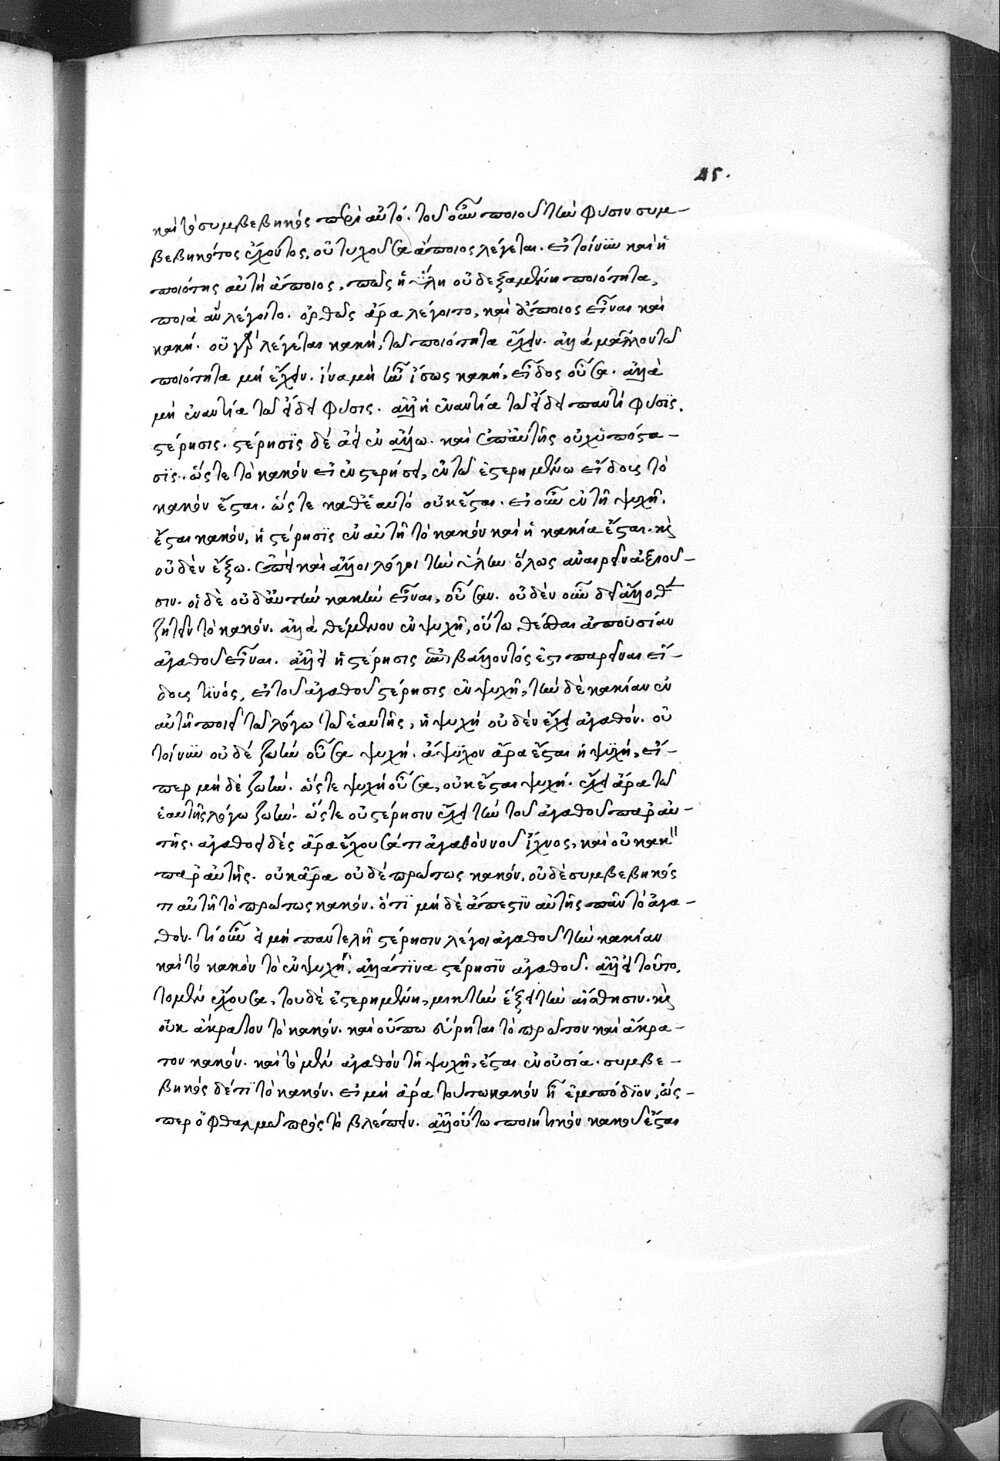 45.
καὶ τὸ συμβεβηκὸς περὶ αὐτό. τοῦ οὖν ποιοῦ τὴν φύσιν συμ-
βεβηκότος ἔχοντος, οὐ τυχοῦσα ἄποιος λέγεται. εἰ τοίνυν καὶ ἡ
ποιότης αὐτὴ ἄποιος, πῶς ἡ ὕλη οὐ δεξαμένη ποιότητα,
ποιὰ ἂν λέγοιτο. ὀρθῶς ἄρα λέγοιτο, καὶ ἄποιος εἶναι καὶ
κακή. οὐ γὰρ λέγεται κακὴ, τῶ ποιότητα ἔχειν. ἀλλὰ μᾶλλον τῶ
ποιότητα μὴ ἔχειν. ἵνα μὴ ἦν ἴσως κακὴ, εἶδος οὖσα. ἀλλὰ
μὴ ἐναντία τῶ εἴδει φύσις. ἀλλ' ἡ ἐναντία τῶ εἴδει παντὶ φύσις,
στέρησις. στέρησις δὲ ἀεὶ ἐν ἄλλω. καὶ ἐπ' αὐτῆς οὐχ ὑπόστα-
σις. ὥστε τὸ κακὸν εἰ ἐν στερήσει, ἐν τῶ ἐστερημένω εἴδους τὸ
κακὸν ἔσται. ὥστε καθ' ἑαυτὸ οὐκ ἔσται. εἰ οὖν ἐν τῆ ψυχῆ,
ἔσται κακὸν, ἡ στέρησις ἐν αὐτῆ τὸ κακὸν καὶ ἡ κακία ἔσται. καὶ
οὐδὲν ἔξω. ἐπεὶ καὶ ἄλλοι λόγοι τὴν ὕλην ὅλως ἀναιρεῖν ἀξιοῦ-
σιν. οἱ δὲ οὐδ' αὐτὴν κακὴν εἶναι, οὖσαν. οὐδὲν οὖν δεῖ ἄλλοθεν
ζητεῖν τὸ κακόν. ἀλλὰ θέμενον ἐν ψυχῆ, οὕτω θέσθαι ἀπουσίαν
ἀγαθοῦ εἶναι. ἀλλ' εἰ ἡ στέρησις ἐπιβάλλοντός ἐστι παρεῖναι εἴ-
δους τινὸς, εἰ τοῦ ἀγαθοῦ στέρησις ἐν ψυχῆ, τὴν δὲ κακίαν ἐν
αὐτῆ ποιεῖ τῶ λόγω τῶ ἑαυτῆς, ἡ ψυχὴ οὐδὲν ἔχει ἀγαθόν. οὐ
τοίνυν οὐδὲ ζωὴν οὖσα ψυχή. ἄψυχον ἄρα ἔσται ἡ ψυχὴ, εἴ-
περ μηδὲ ζωήν. ὥστε ψυχὴ οὖσα, οὐκ ἔσται ψυχή. ἔχει ἄρα τῶ
ἑαυτῆς λόγω ζωήν. ὥστε οὐ στέρησιν ἔχει τὴν τοῦ ἀγαθοῦ παρ' αὐ-
τῆς. ἀγαθοειδὲς ἄρα ἔχουσά τι ἀγαθὸν νοῦ ἴχνος, καὶ οὐ κακὸν
παρ' αὐτῆς. οὐκ ἄρα οὐδὲ πρώτως κακόν. οὐδὲ συμβεβηκός
τι αὐτῆ τὸ πρώτως κακόν. ὅτι μηδὲ ἄπεστιν αὐτῆς πᾶν τὸ ἀγα-
θόν. τί οὖν εἰ μὴ παντελῆ στέρησιν λέγοι ἀγαθοῦ τὴν κακίαν
καὶ τὸ κακὸν τὸ ἐν ψυχῆ, ἀλλά τινα στέρησιν ἀγαθοῦ. ἀλλ' εἰ τοῦτο,
τὸ μὲν ἔχουσα, τοῦ δὲ ἐστερημένη, μικτὴν ἕξει τὴν διάθεσιν. καὶ
οὐκ ἄκρατον τὸ κακόν. καὶ οὔπω εὕρηται τὸ πρῶτον καὶ ἄκρα-
τον κακόν. καὶ τὸ μὲν ἀγαθὸν τῆ ψυχῆ, ἔσται ἐν οὐσία. συμβε-
βηκὸς δέ τι τὸ κακόν. εἰ μὴ ἄρα τούτω κακὸν ἧ ἐμπόδιον, ὥσ-
περ ὀφθαλμῶ πρὸς τὸ βλέπειν. ἀλλ' οὕτω ποιητικὸν κακοῦ ἔσται